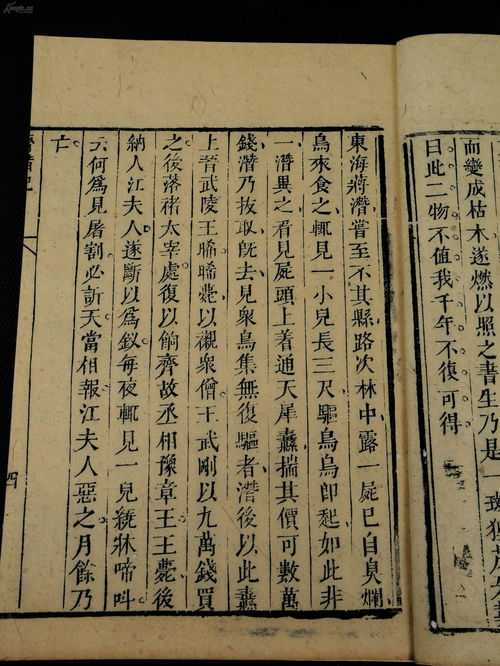 而變成枯木遂燃以照之書生乃是一斑狸
曰此二物不值我千年不復可得
東海蔣潛嘗至不其縣路次林中露一屍巳自臭爛
烏來食之輒見一小兒長三尺驅烏烏卽起如此非
一潛異之看見屍頭上著通天犀纛揣其價可數萬
錢潛乃拔取旣去見衆鳥集無復驅者潛後以此纛
上晉武陵王晞晞薨以襯衆僧王武剛以九萬錢買
之後落褚太宰處復以餉齊故丞相豫章王王薨後
納人江夫人遂斷以爲釵每夜輒見一兒繞牀啼呌
云何爲見屠割必訴天當相報江夫人惡之月餘乃
亡
四